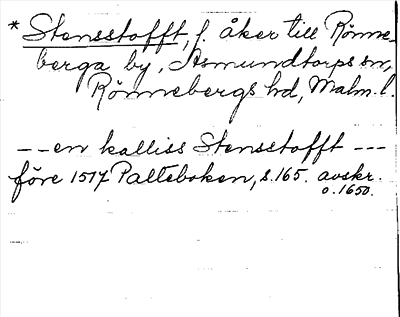 * Stensstofft, f. åker till Rönne-
berga by, Asmundtorps sn,
Rönnebergs hd, Malm. l.
--en kalliss Stensstofft ---
före 1517 Palteboken, s. 165. avskr.
o. 1650.